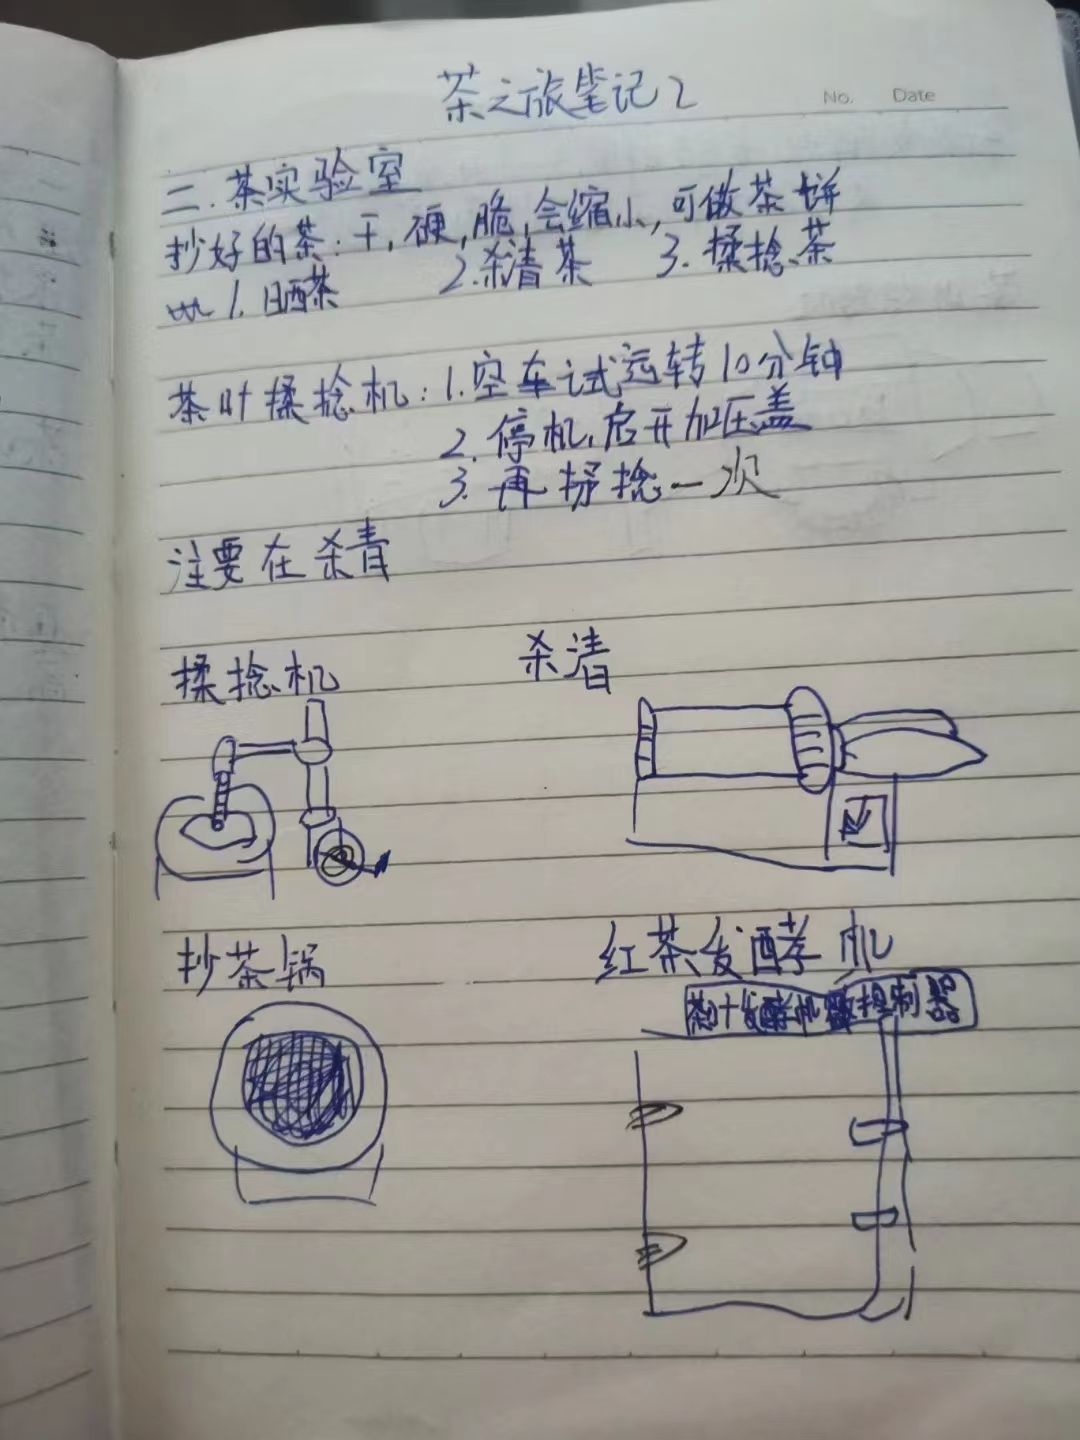 茶之旅笔记2
No. Date
二.茶实验室
抄好的茶:干,硬,脆,会缩小,可做茶饼
1.晒茶 2.杀清茶 3.揉捻茶
茶叶揉捻机:1.空车试运转10分钟
2.停机,启开加压盖
3.再捻一次
注要在杀青
揉捻机 杀清
抄茶锅 红茶发酵机
茶叶发酵机控制器